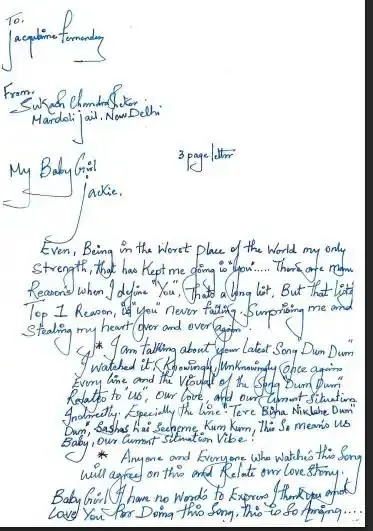 To,
Jacqueline Fernandez
From,
Sukash Chandrasekar
Mandoli jail, New Delhi
3 page letter
My Baby Girl
Jackie,
Even, Being in the Worst Place of the World my only
Strength, that has Kept me going is "you"..... There are many
Reasons when I define "You", thats a long list, But that lists
Top 1 Reason, is "you" never failing, Surprising me and
Stealing my heart over and over again.
* I am talking about your Latest Song "Dum Dum"
I watched it, Knowingly, Unknowingly once again
Every line and the Visual of the Song "Dum Dum"
Relates to Us, Our Love, and Our Current Situation
Indirectly. Especially the line "Tere Bina Nikle he Dum
Dum, Sason hai Seene me Kum Kum, this So means Us
Baby, Our Current Situation Vibe!
* Anyone and Everyone who watches this Song
will agree on this and Relate our Love Story.
Baby Girl I have no Words to Express I thank you and
Love You for Doing this Song, this is So Amazing....